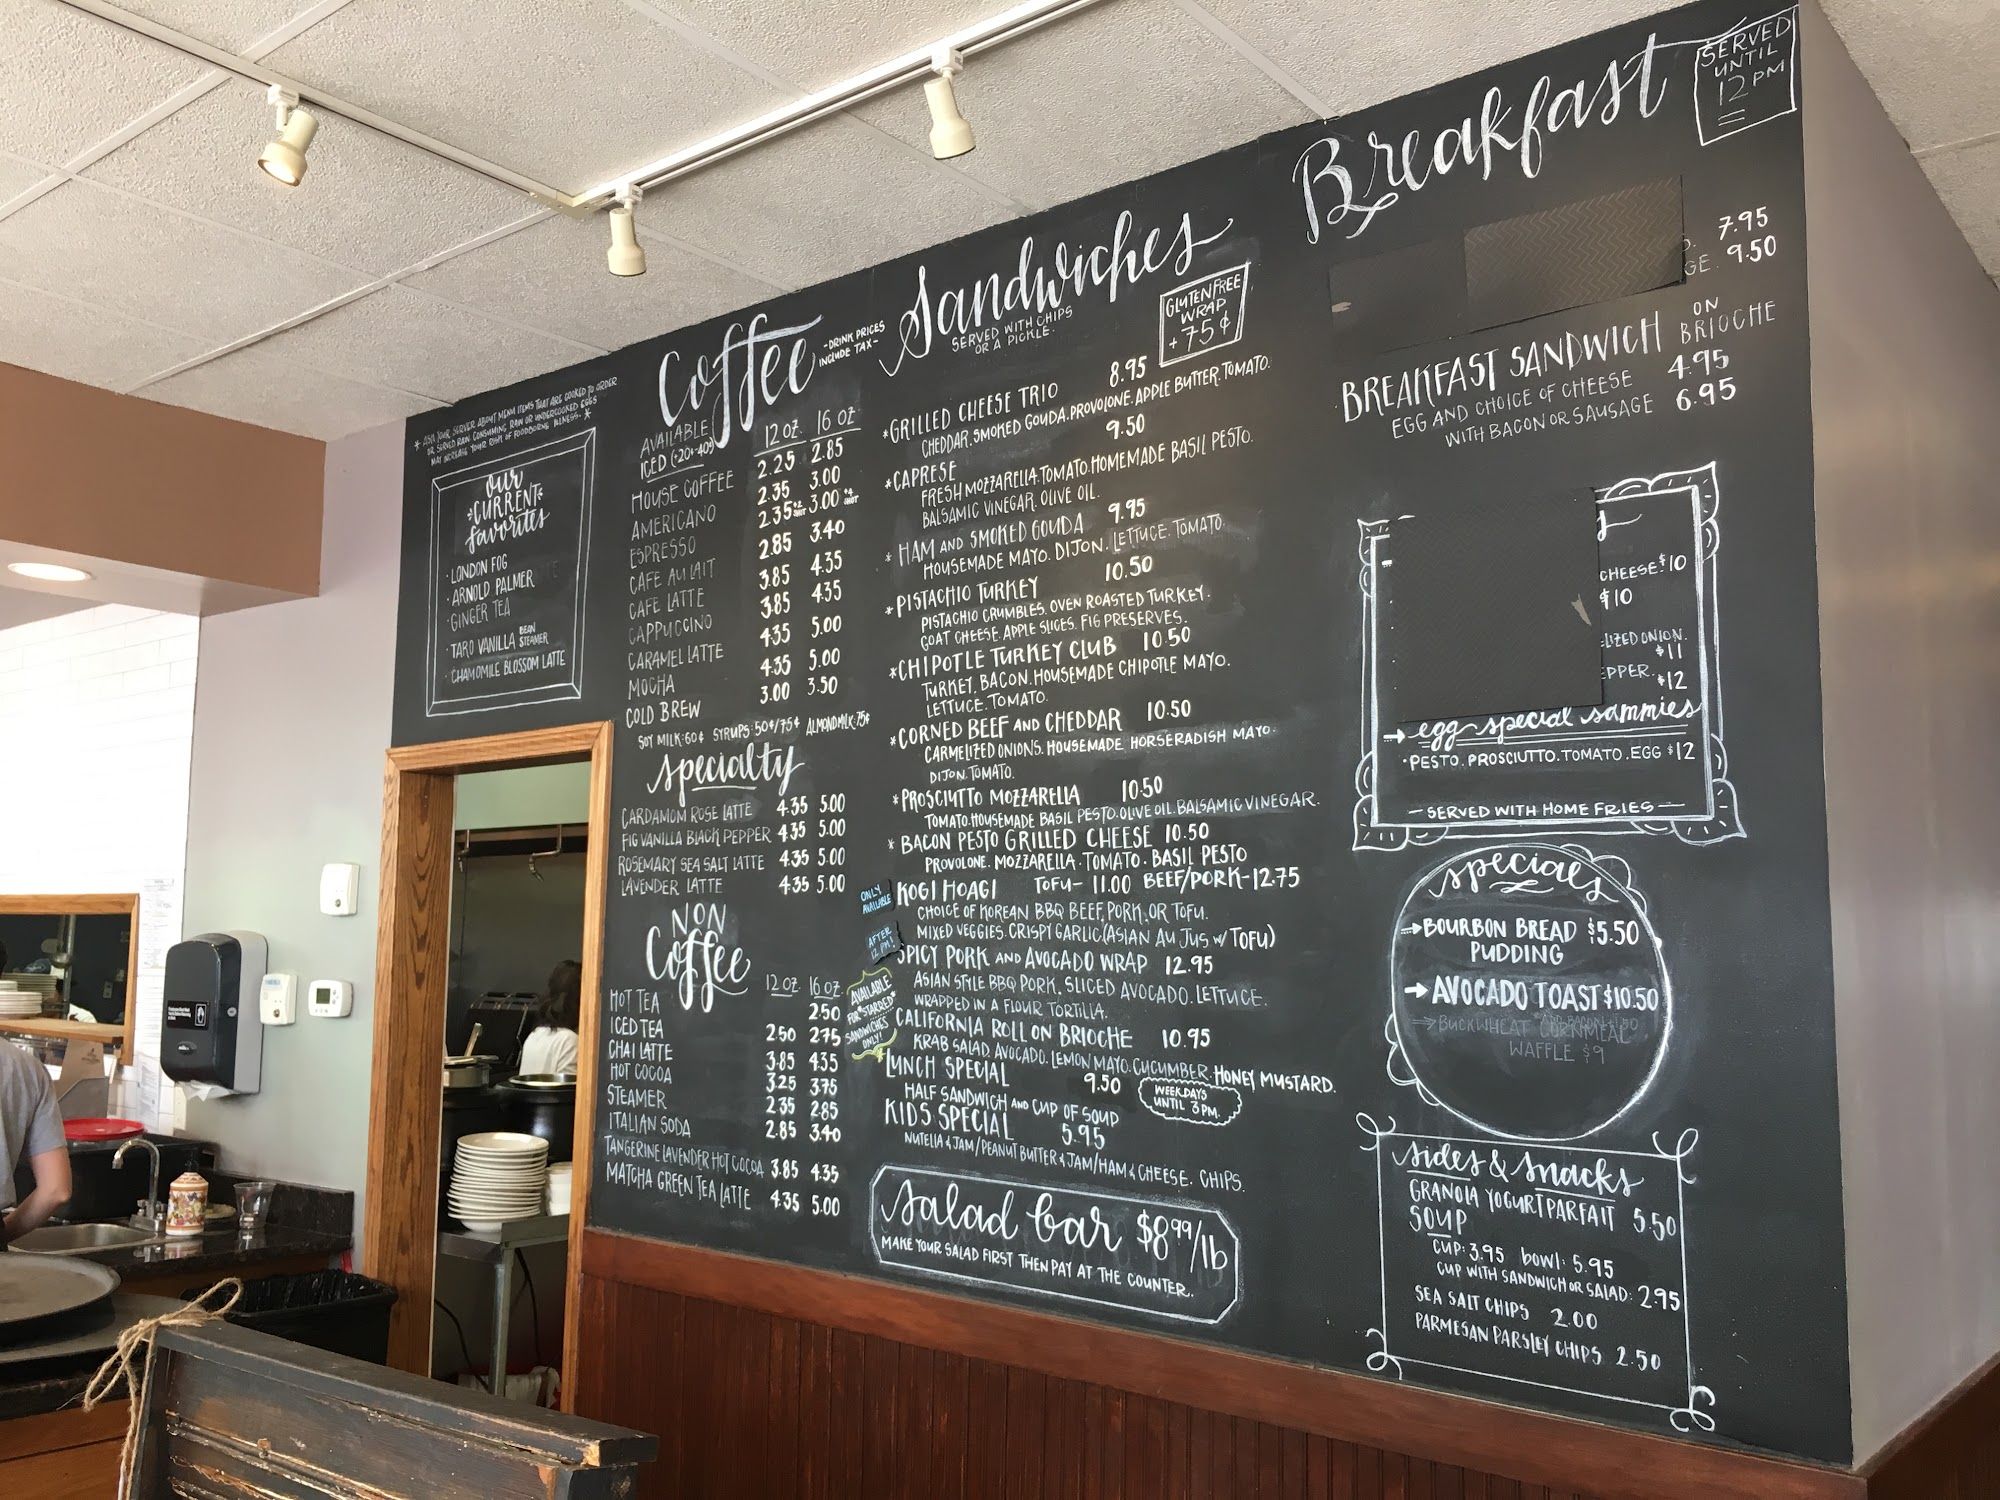 * ASK YOUR SERVER ABOUT MENU ITEMS THAT ARE COOKED TO ORDER
OR SERVED RAW. CONSUMING RAW OR UNDERCOOKED EGGS
MAY INCREASE YOUR RISK OF FOODBORNE ILLNESS. *
our
CURRENT
favorites
· LONDON FOG
· ARNOLD PALMER
· GINGER TEA
· TARO VANILLA BEAN STEAMER
· CHAMOMILE BLOSSOM LATTE
Coffee
-DRINK PRICES
INCLUDE TAX-
AVAILABLE
ICED (+20¢-40¢)
12 OZ. 16 OZ
HOUSE COFFEE 2.25 2.85
AMERICANO 2.35 3.00
ESPRESSO 2.35 3.00
CAFE AU LAIT 2.85 3.40
CAFE LATTE 3.85 4.35
CAPPUCCINO 3.85 4.35
CARAMEL LATTE 4.35 5.00
MOCHA 4.35 5.00
COLD BREW 3.00 3.50
SOY MILK: 60¢ SYRUPS: 50¢/75¢ ALMONDMILK: 75¢
specialty
CARDAMOM ROSE LATTE 4.35 5.00
FIG VANILLA BLACK PEPPER 4.35 5.00
ROSEMARY SEA SALT LATTE 4.35 5.00
LAVENDER LATTE 4.35 5.00
NON
Coffee
12 OZ 16 OZ
HOT TEA 2.50
ICED TEA 2.50 2.75
CHAI LATTE 3.85 4.35
HOT COCOA 3.25 3.75
STEAMER 2.35 2.85
ITALIAN SODA 2.85 3.40
TANGERINE LAVENDER HOT COCOA 3.85 4.35
MATCHA GREEN TEA LATTE 4.35 5.00
Sandwiches
SERVED WITH CHIPS
OR A PICKLE.
GLUTEN FREE
WRAP
+75¢
*GRILLED CHEESE TRIO 8.95
CHEDDAR. SMOKED GOUDA. PROVOLONE. APPLE BUTTER. TOMATO.
*CAPRESE 9.50
FRESH MOZZARELLA. TOMATO. HOMEMADE BASIL PESTO.
BALSAMIC VINEGAR. OLIVE OIL.
* HAM AND SMOKED GOUDA 9.95
HOUSEMADE MAYO. DIJON. LETTUCE. TOMATO.
*PISTACHIO TURKEY 10.50
PISTACHIO CRUMBLES. OVEN ROASTED TURKEY.
GOAT CHEESE. APPLE SLICES. FIG PRESERVES.
*CHIPOTLE TURKEY CLUB 10.50
TURKEY. BACON. HOUSEMADE CHIPOTLE MAYO.
LETTUCE. TOMATO.
*CORNED BEEF AND CHEDDAR 10.50
CARMELIZED ONIONS. HOUSEMADE HORSERADISH MAYO.
DIJON. TOMATO.
*PROSCIUTTO MOZZARELLA 10.50
TOMATO. HOUSEMADE BASIL PESTO. OLIVE OIL. BALSAMIC VINEGAR.
* BACON PESTO GRILLED CHEESE 10.50
PROVOLONE. MOZZARELLA. TOMATO. BASIL PESTO
ONLY
AVAILABLE
AFTER
12 PM!
KOGI HOAGI TOFU- 11.00 BEEF/PORK-12.75
CHOICE OF KOREAN BBQ BEEF, PORK, OR TOFU.
MIXED VEGGIES. CRISPY GARLIC. (ASIAN AU JUS W/ TOFU)
SPICY PORK AND AVOCADO WRAP 12.95
ASIAN STYLE BBQ PORK. SLICED AVOCADO. LETTUCE.
WRAPPED IN A FLOUR TORTILLA.
CALIFORNIA ROLL ON BRIOCHE 10.95
KRAB SALAD. AVOCADO. LEMON MAYO. CUCUMBER. HONEY MUSTARD.
AVAILABLE
FOR *STARRED*
SANDWICHES
ONLY!
LUNCH SPECIAL 9.50
HALF SANDWICH AND CUP OF SOUP
WEEKDAYS
UNTIL 3PM.
KIDS SPECIAL 5.95
NUTELLA & JAM/PEANUT BUTTER & JAM/HAM & CHEESE. CHIPS.
Salad bar $8.99/lb
MAKE YOUR SALAD FIRST THEN PAY AT THE COUNTER.
Breakfast
SERVED
UNTIL
12 PM
7.95
GE. 9.50
BREAKFAST SANDWICH ON BRIOCHE
EGG AND CHOICE OF CHEESE 4.95
WITH BACON OR SAUSAGE 6.95
CHEESE. $10
$10
LIZED ONION.
$11
EPPER. $12
egg special sammies
· PESTO. PROSCIUTTO. TOMATO. EGG $12
-SERVED WITH HOME FRIES-
specials
BOURBON BREAD $5.50
PUDDING
AVOCADO TOAST $10.50
BUCKWHEAT CORNMEAL
WAFFLE $9
sides & snacks
GRANOLA YOGURT PARFAIT 5.50
SOUP
CUP: 3.95 bowl: 5.95
CUP WITH SANDWICH OR SALAD: 2.95
SEA SALT CHIPS 2.00
PARMESAN PARSLEY CHIPS 2.50